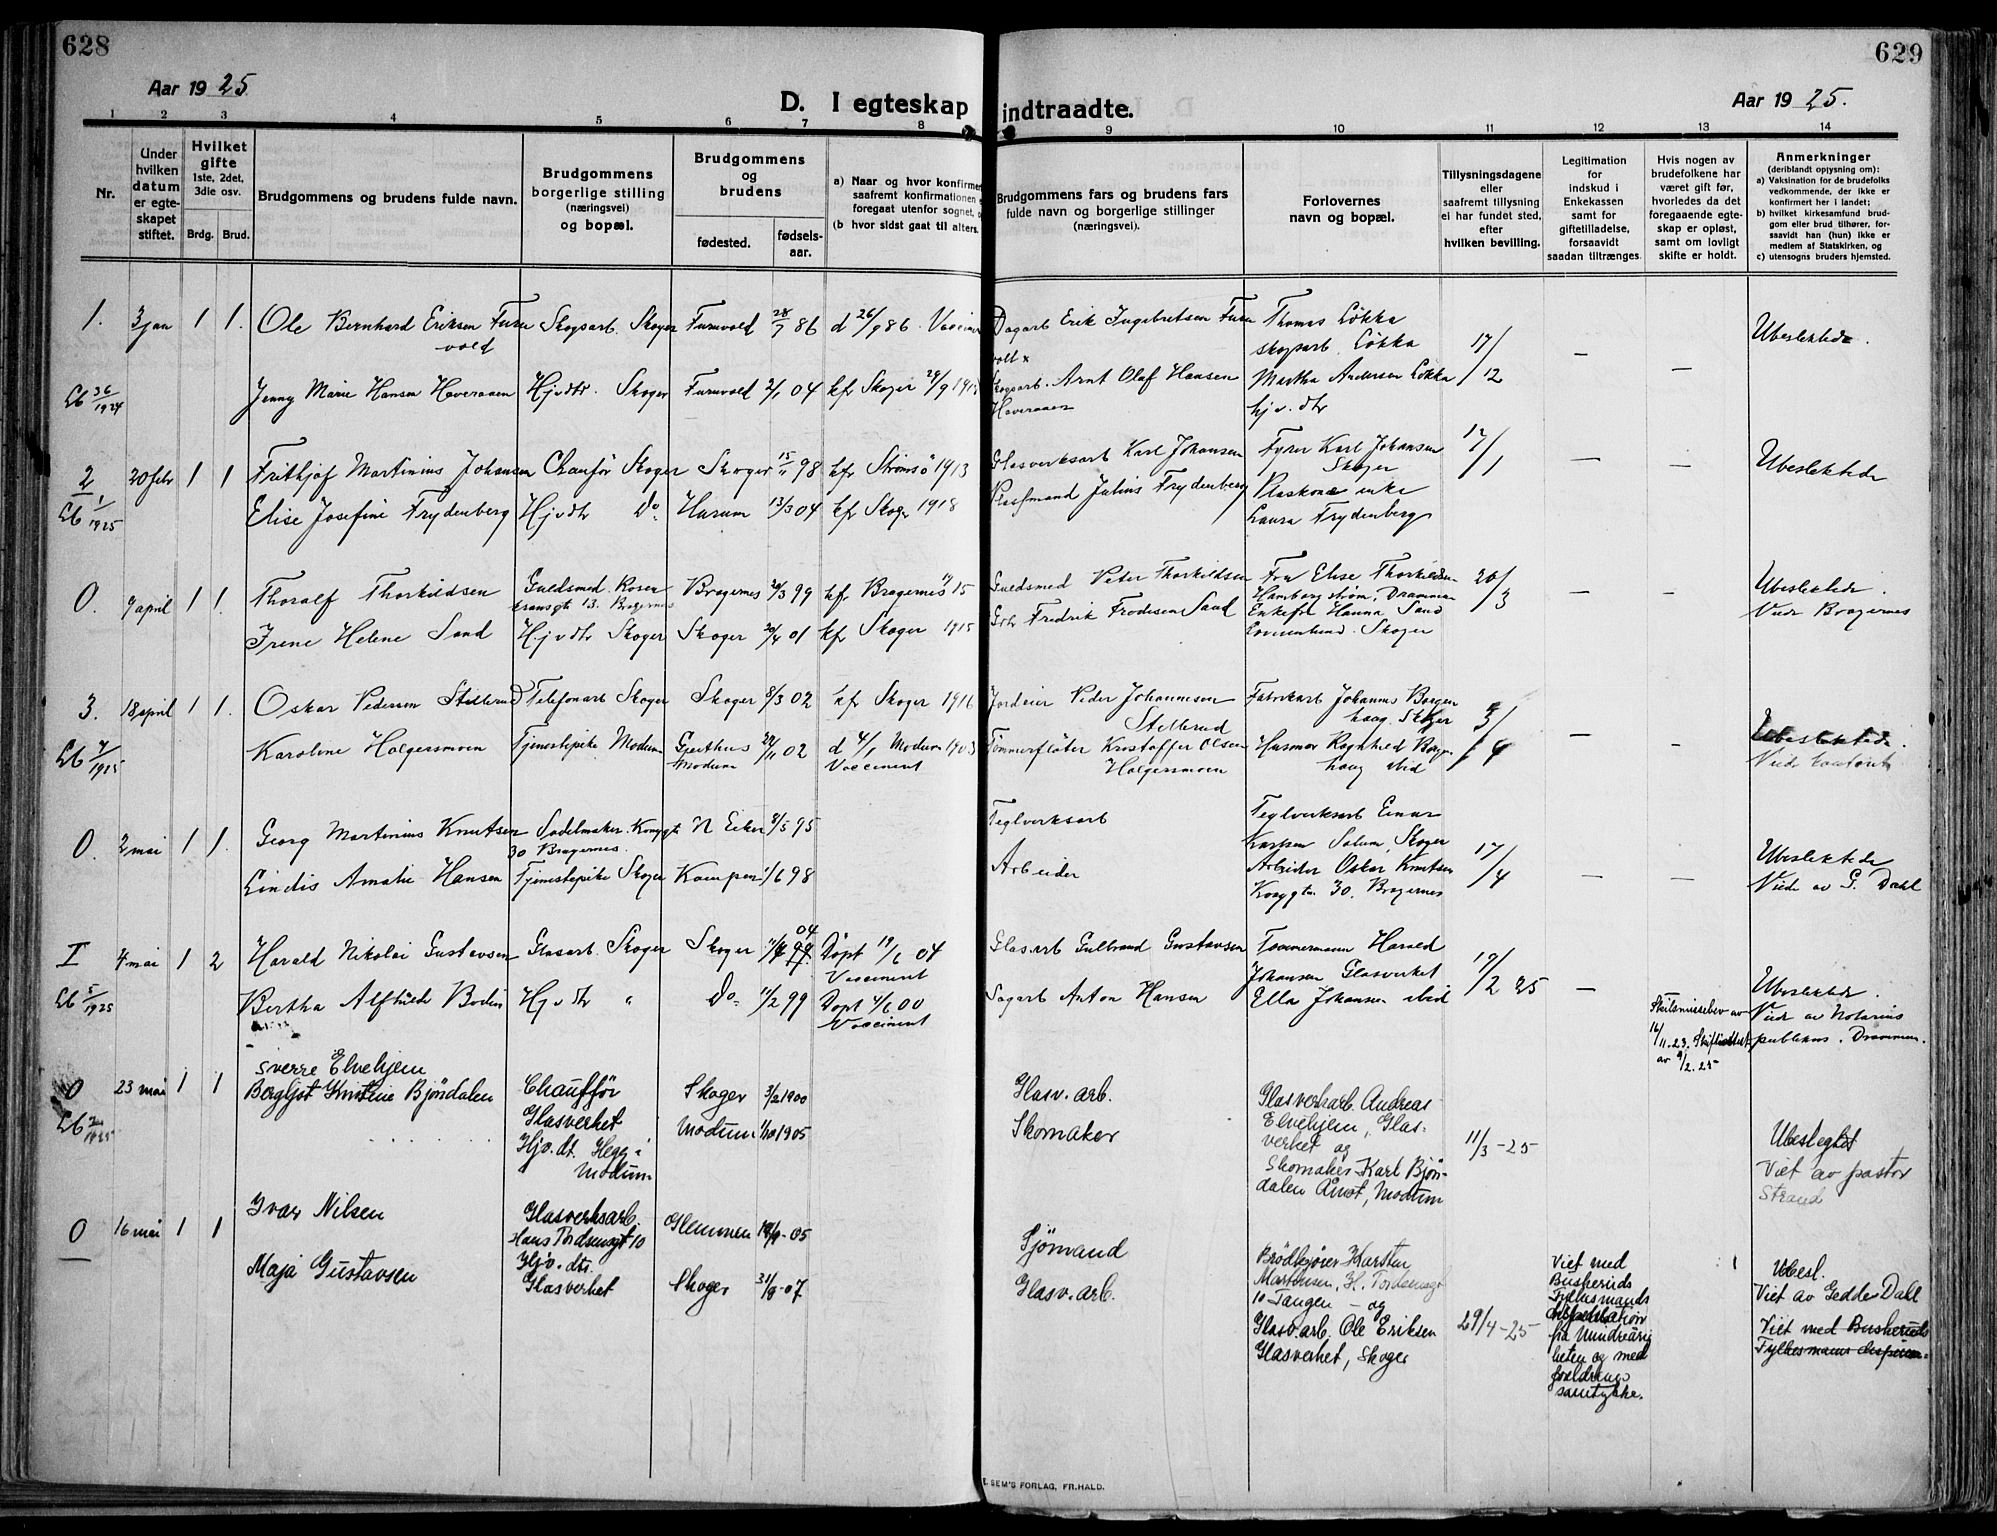 628
Aar 1925
D. I egteskap indtraadte.
Aar 1925.
629
1 2 3 4 5 6 7 8 9 10 11 12 13 14
Nr.
Under hvilken datum er egteskapet stiftet.
Hvilket gifte
1ste, 2det, 3die osv.
Brdg. Brud.
Brudgommens og brudens fulde navn.
Brudgommens borgerlige stilling (næringsvei) og bopæl.
Brudgommens og brudens
fødested. fødselsaar.
a) Naar og hvor konfirmer
saafremt konfirmationen
foregaat utenfor sognet,
(b hvor sidst gaat til alters.
Brudgommens fars og brudens fars
fulde navn og borgerlige stillinger
(næringsvei).
Forlovernes
navn og bopæl.
Tillysningsdagene
eller
saafremt tillysning
ei har fundet sted,
efter
hvilken bevilling.
Legitimation
for
indskud i
Enkekassen
samt for
giftetilladelse,
forsaavidt
saadan tiltrænges.
Hvis nogen av
brudefolkene har
været gift før,
hvorledes da det
foregaaende egte-
skap er opløst,
samt om lovligt
skifte er holdt.
Anmerkninger
(deriblandt opjysning om):
a) Vaksination for de brudefolks
vedkommende, der ikke er
konfirmert her i landet;
b) hvilket kirkesamfund brud-
gom eller brud tilhører, for-
saavidt han (hun) ikke er
medlem af Statskirken, og
c) utensogns bruders hjemsted.
1. 3 jan 1 1. Ole Bernhard Eriksen Furu
vold
Skogsarb. Skoger Furuvold 28/7 86 d 26/9 86. Vaccinert
Dagarb Erik Ingebretsen Furu
volt x
Thomas Løkka
skogsarb. Løkka
17/12
—
—
Ubeslektede.
Lb 36/1924
Jenny Marie Hansen Haveraaen Hjvdtr. Skoger Furuvold 2/1 04 kf Skoger
Skogsarb. Arnt Olaf Hansen
Haveraaen
Martha Andersen Løkka
hjv. dtr
2 20 febr 1 1 Frithjof Martinius Johansen Chaufør Skoger Skoger 15/11 98 kf Strømsø 1913
Glasverksarb Karl Johansen
Fyrer Karl Johansen
Skoger
17/1
—
—
Ubeslektede
Lb 1/1925
Elise Josefine Frydenberg Hjvdtr Do Hurum 13/3 04 kf Skoger 1918
Julius Frydenberg
enke
Laura Frydenberg
0. 7 april 1 1. Thoralf Thorkildsen
Guldsmed. Rosen
kransgt 13. Bragernes
Bragernes 20/3 99 kf Bragernes 15
Guldsmed Peter Thorkildsen
Fru Elise Thorkildsen
Hamborgstrøm, Drammen
20/3
—
—
Ubeslektede.
Viedr Bragernes
Irene Helene Sand Hjvdtr Skoger Skoger 20/4 01 kf Skoger 1915
Grb Fredrik Frodesen Sand
Enkefru Hanna Sand
Skoger
3. 18 april 1 1. Oskar Pedersen Stillerud Telefonarb Skoger Skoger 8/3 02 kf Skoger 1916
Jordeier Peder Johannesen
Stillerud
Fabrikarb Johannes Borgen
haug. Skoger
—
—
Ubeslektede.
Lb 4/1925
Karoline Holgersmoen Tjenestepike Modum Geithus
Modum 22/11 02 d 4/1 Modum 1903
Vaccinert
Tømmerfløter Kristoffer Olsen
Holgersmoen
Husmor Ragnhild Borgen
haug ibid
0. 2 mai 1 1. Georg Martinius Knutsen
Sadelmaker. Konggt
30 Bragernes.
N Eiker 8/5 95
Teglverksarb
Teglverksarb Einar
Karlsen Solum, Skoger
17/4
—
—
Ubeslektede
Viedr av G. Dahl
Lindis Amalie Hansen Tjenestepike Skoger Kampen 1/6 98
Arbeider
Arbeider Oskar Knutsen
Konggtn 30. Bragernes
I 4 mai 1 2 Harald Nikolai Gustavsen Glasarb. Skoger Skoger 04 Døpt 19/6 04
Vaccinert
Glasarb Gulbrand Gustavsen
Tømmermann Harald
Johansen Glasverket
19/2 25
—
Lb 5/1925
Bertha Alfhilde Bodin Hjvdtr " Do 11/2 99 Døpt 4/6 00
Vaccinert
Sagarb Anton Hansen
Ella Johansen ibid
Skilsmissebev av
16/11.23. Skifteattest
av 9/2.25
Ubeslektede.
Viedr av Notarius
publikus. Drammen.
0 23 mai 1 1
Sverre Elvehjem
Bergljot Kristine Bjøndalen
Chauffør
Glasverket
Hjv. dt. Heggi
Modum
Skoger 3/2 1900
Modum 1/10 1905
Glasv. arb.
Skomaker
Glasverkarb. Andreas
Elvehjem, Glas-
verket og
Skomaker Karl Bjøn-
dalen Åmot, Modum
11/3-25
Ubeslegtet
Viet av pastor
Strand
0 16 mai 1 1
Ivar Nilsen
Maja Gustavsen
Glasverksarb.
Hans Tordsensgt 10
Hjv. dtr.
Glasverket
Glemmen
Skoger 31/8-07
Sjømand
Glasv. arb.
Brødkjører Karsten
Martinsen, H. Tordsensgt
10 Tangen – og
Glasv. arb. Ole Eriksen
Glasverket, Skoger
29/4-25
Viet med
Buskeruds
Fylkesmands
dispensation
fra Umyndig
heten og med
foreldrenes
samtykke.
Ubesl.
Viet av Gedde Dahl
Viet med Buskeruds
Fylkesmans dispen-
E. SEM'S FORLAG, FR.HALD.